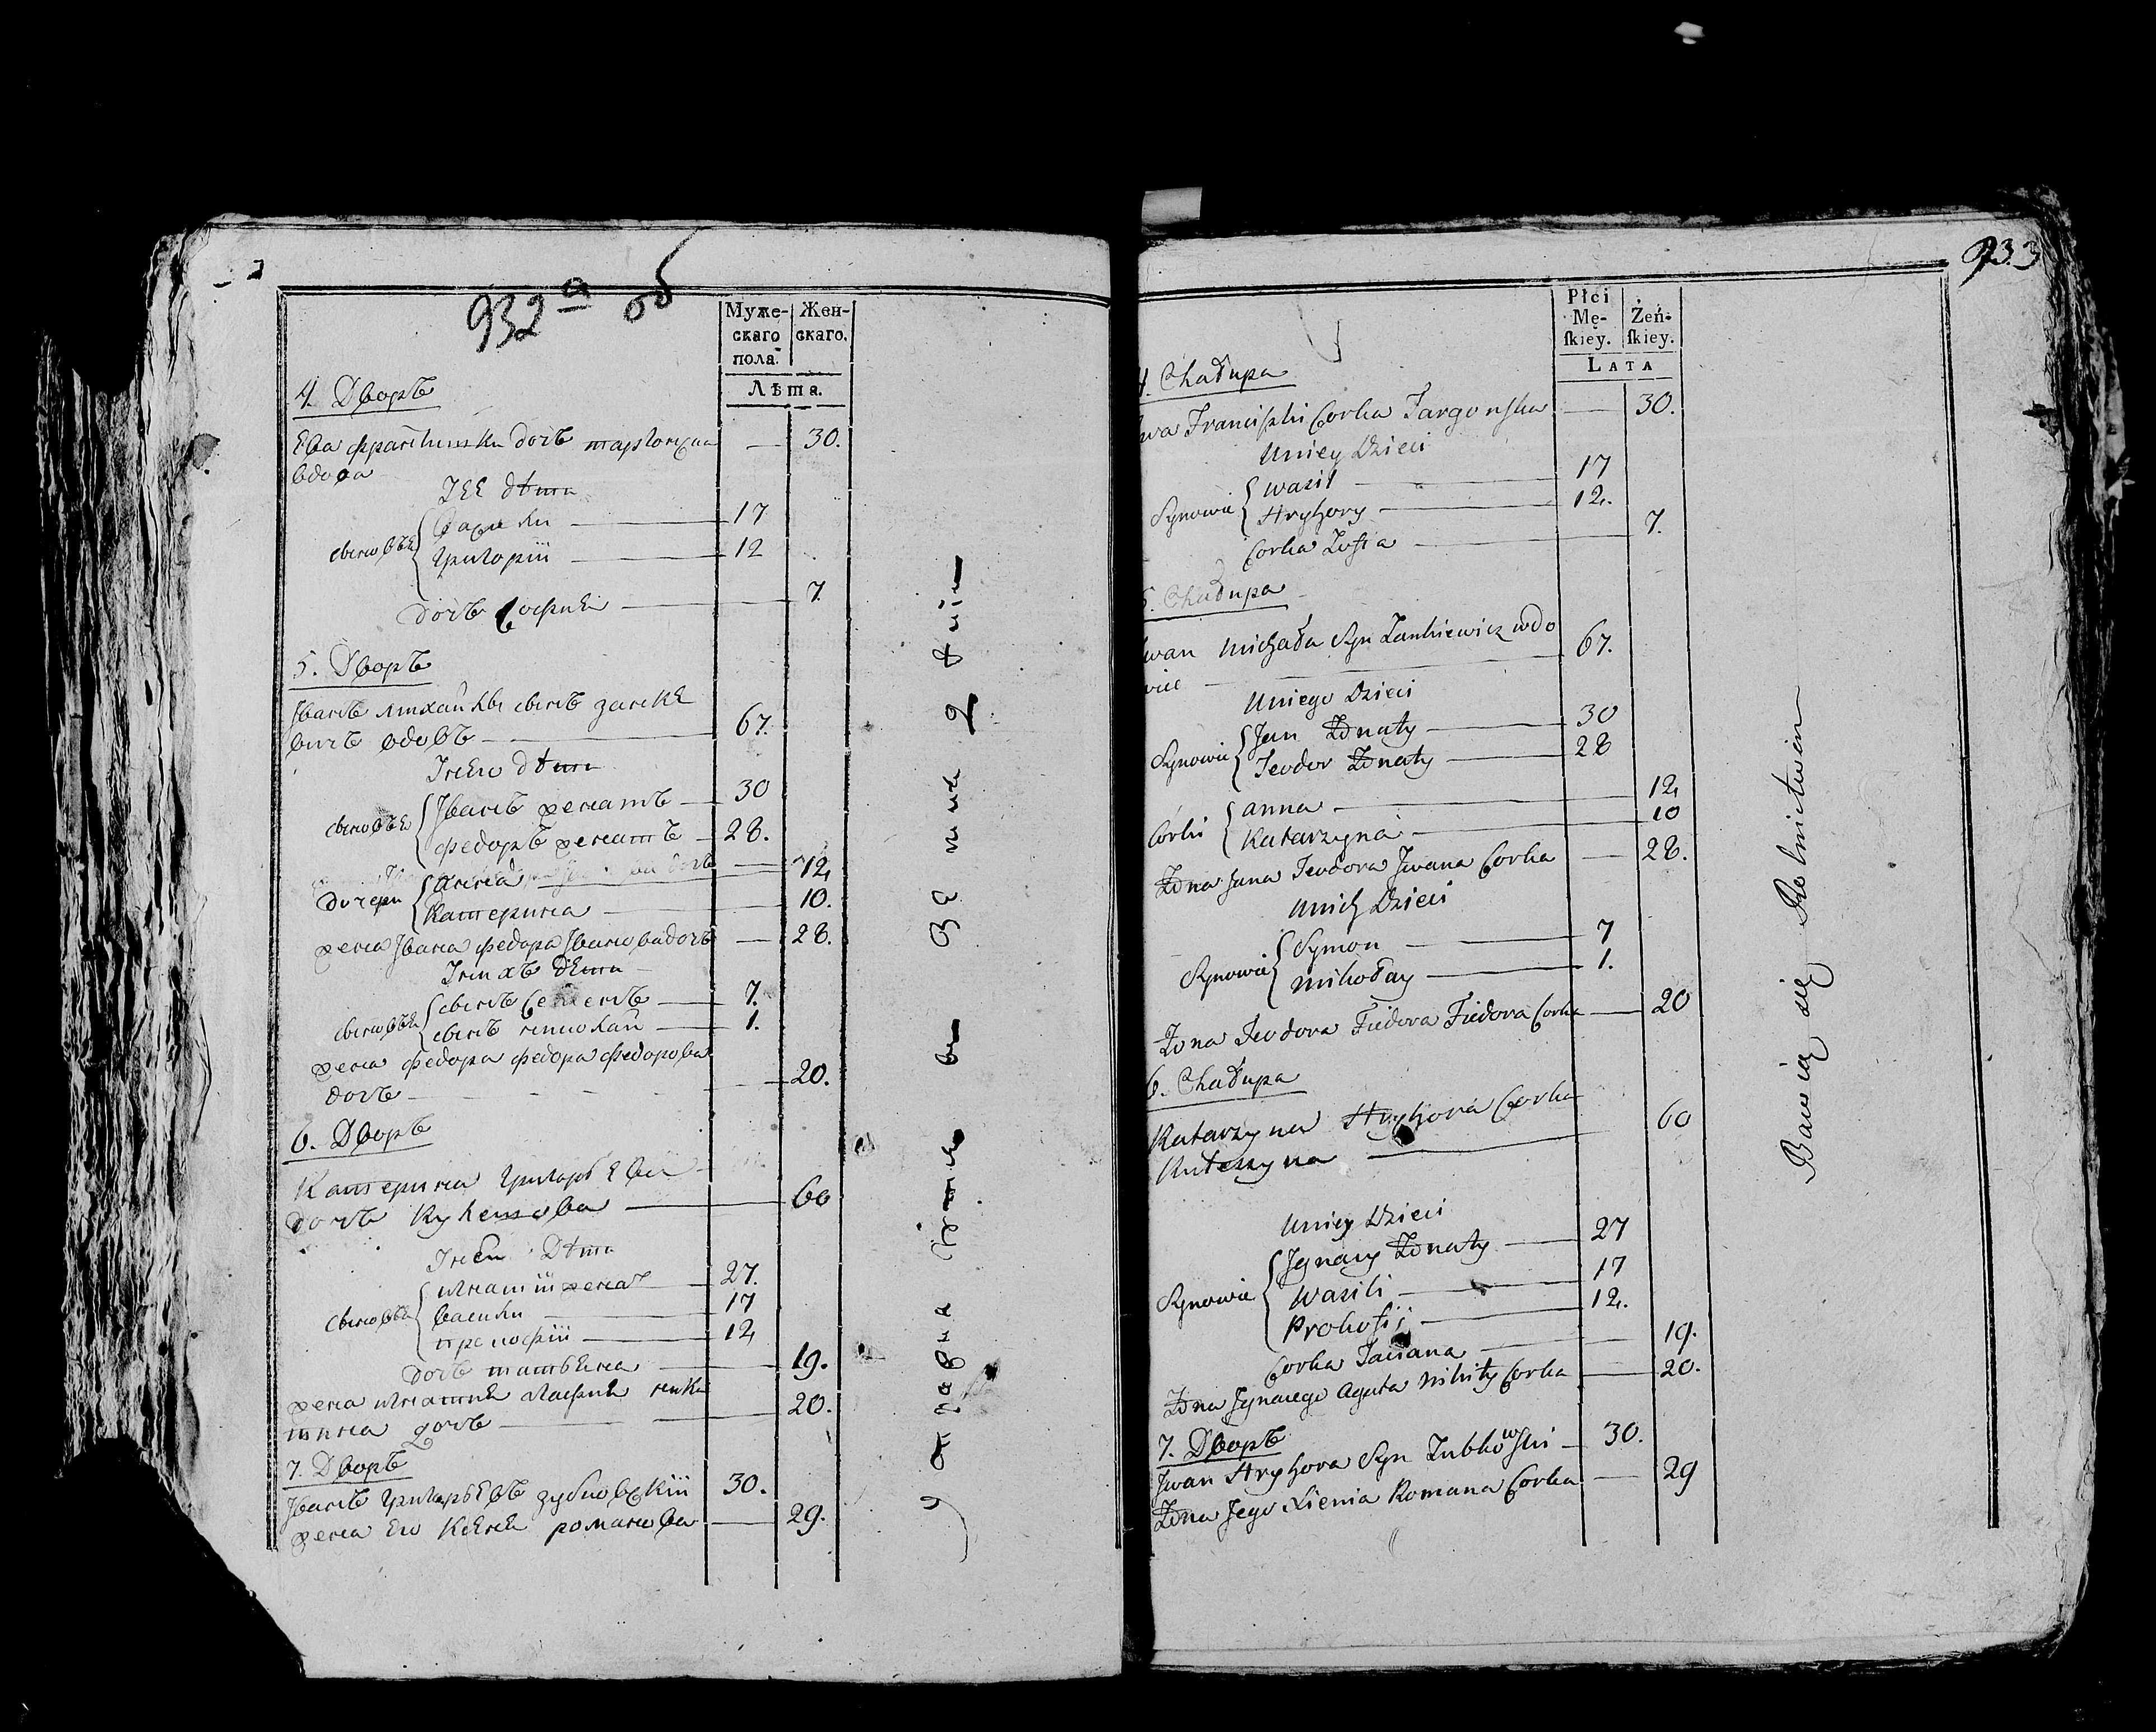 932а об
Муже-
скаго
пола.
Жен-
скаго.
Лѣта.
4. Дворъ
Ева францишка дочъ таргонская — 30.
вдова
У ее дѣти
сыновъя
Василий — 17
григорій — 12
дочъ София — 7
5. Дворъ
Іванъ михайлы сынъ занке
вичъ вдовъ — 67.
У него дѣти
сыновъя
Іванъ женатъ — 30
федоръ женатъ — 28.
дочери
Анна — 12
Катерина — 10.
жена Івана федора Іванова дочъ — 28.
У них дѣти
сыновъя
сынъ Семенъ — 7.
сынъ николай — 1.
жена федора федора федорова
дочъ — 20.
6. Дворъ
Катерина григоръева
дочъ — 60
У неи дѣти
сыновъя
игнатій женат — 27.
василий — 17
прокофій — 12
дочъ татъяна — 19.
жена игнатия агафия ники
тина дочъ — 20.
7. Дворъ
Іванъ григоръевъ зубковскій 30.
жена его Ксения романова — 29.
933
Płci
Mę-
skiey.
Żeń-
skiey.
LATA
4. Chałupa
Ewa Franciszki Corka Targonska — 30.
U niey Dzieci
Synowie
Wasil — 17
Hryhory — 12.
Corka Zofia — 7.
5. Chałupa
Iwan Michała Syn Zankiewicz wdo
wiec — 67.
U niego Dzieci
Synowie
Jan Żonaty — 30
Teodor Żonaty — 28
Corki
Anna — 12
Katarzyna — 10
Żona Jana Teodora Iwana Corka — 28.
U nich Dzieci
Synowie
Symon — 7
Mikołay — 1.
Żona Teodora Fiedora Fiedora Corka — 20
6. Chałupa
Katarzyna Hryhora Corka
— 60
U niey Dzieci
Synowie
Ignacy Żonaty — 27
Wasili — 17
Prokofij — 12.
Corka Taciana — 19.
Żona Ignacego Agata Nikity Corka — 20.
7. Дворъ
Iwan Hryhora Syn Zubkowski — 30.
Żona Jego Xienia Romana Corka — 29
Bawią się Rolnictwem